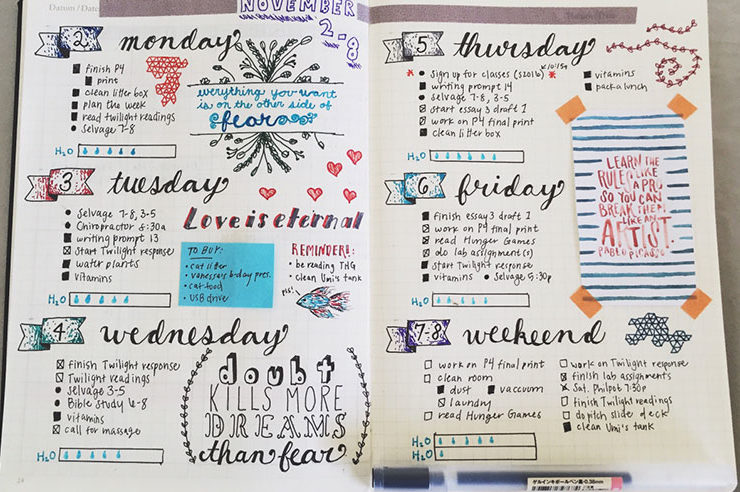 Datum / Date:
NOVEMBER
2-8
2 monday
finish P4
print
clean litter box
plan the week
read twilight readings
Selvage 7-8
H₂O
everything you want
is on the other side of
fear
3 tuesday
Selvage 7-8, 3-5
Chiropractor 8:30a
writing prompt 13
Start Twilight response
water plants
vitamins
H₂O
Love is eternal
TO BUY:
cat litter
vanessa's b-day pres.
cat food
USB drive
REMINDER!:
be reading THG
clean Umi's tank
4 wednesday
finish Twilight response
Twilight readings
Selvage 3-5
Bible Study 6-8
vitamins
call for massage
H₂O
H₂O
doubt
KILLS MORE
DREAMS
than fear
5 thursday
Sign up for classes (S2016)
10:15a
writing prompt 14
Selvage 7-8, 3-5
Start essay 3 draft 1
work on P4 final print
clean litter box
vitamins
pack a lunch
H₂O
LEARN THE
RULES LIKE
A PRO
SO YOU CAN
BREAK THEM
LIKE AN
ARTIST.
PABLO PICASSO
6 friday
finish essay 3 draft 1
work on P4 final print
read Hunger Games
do lab assignment(s)
Start Twilight response
vitamins
Selvage 5:30p
H₂O
7-8 weekend
work on P4 final print
clean room
dust
vaccum
laundry
read Hunger Games
work on Twilight response
finish lab assignments
Sat. Philpot 7:30p
finish Twilight readings
do pitch slide deck
clean Umi's tank
H₂O
H₂O
ゲルインキボールペン 0.38mm